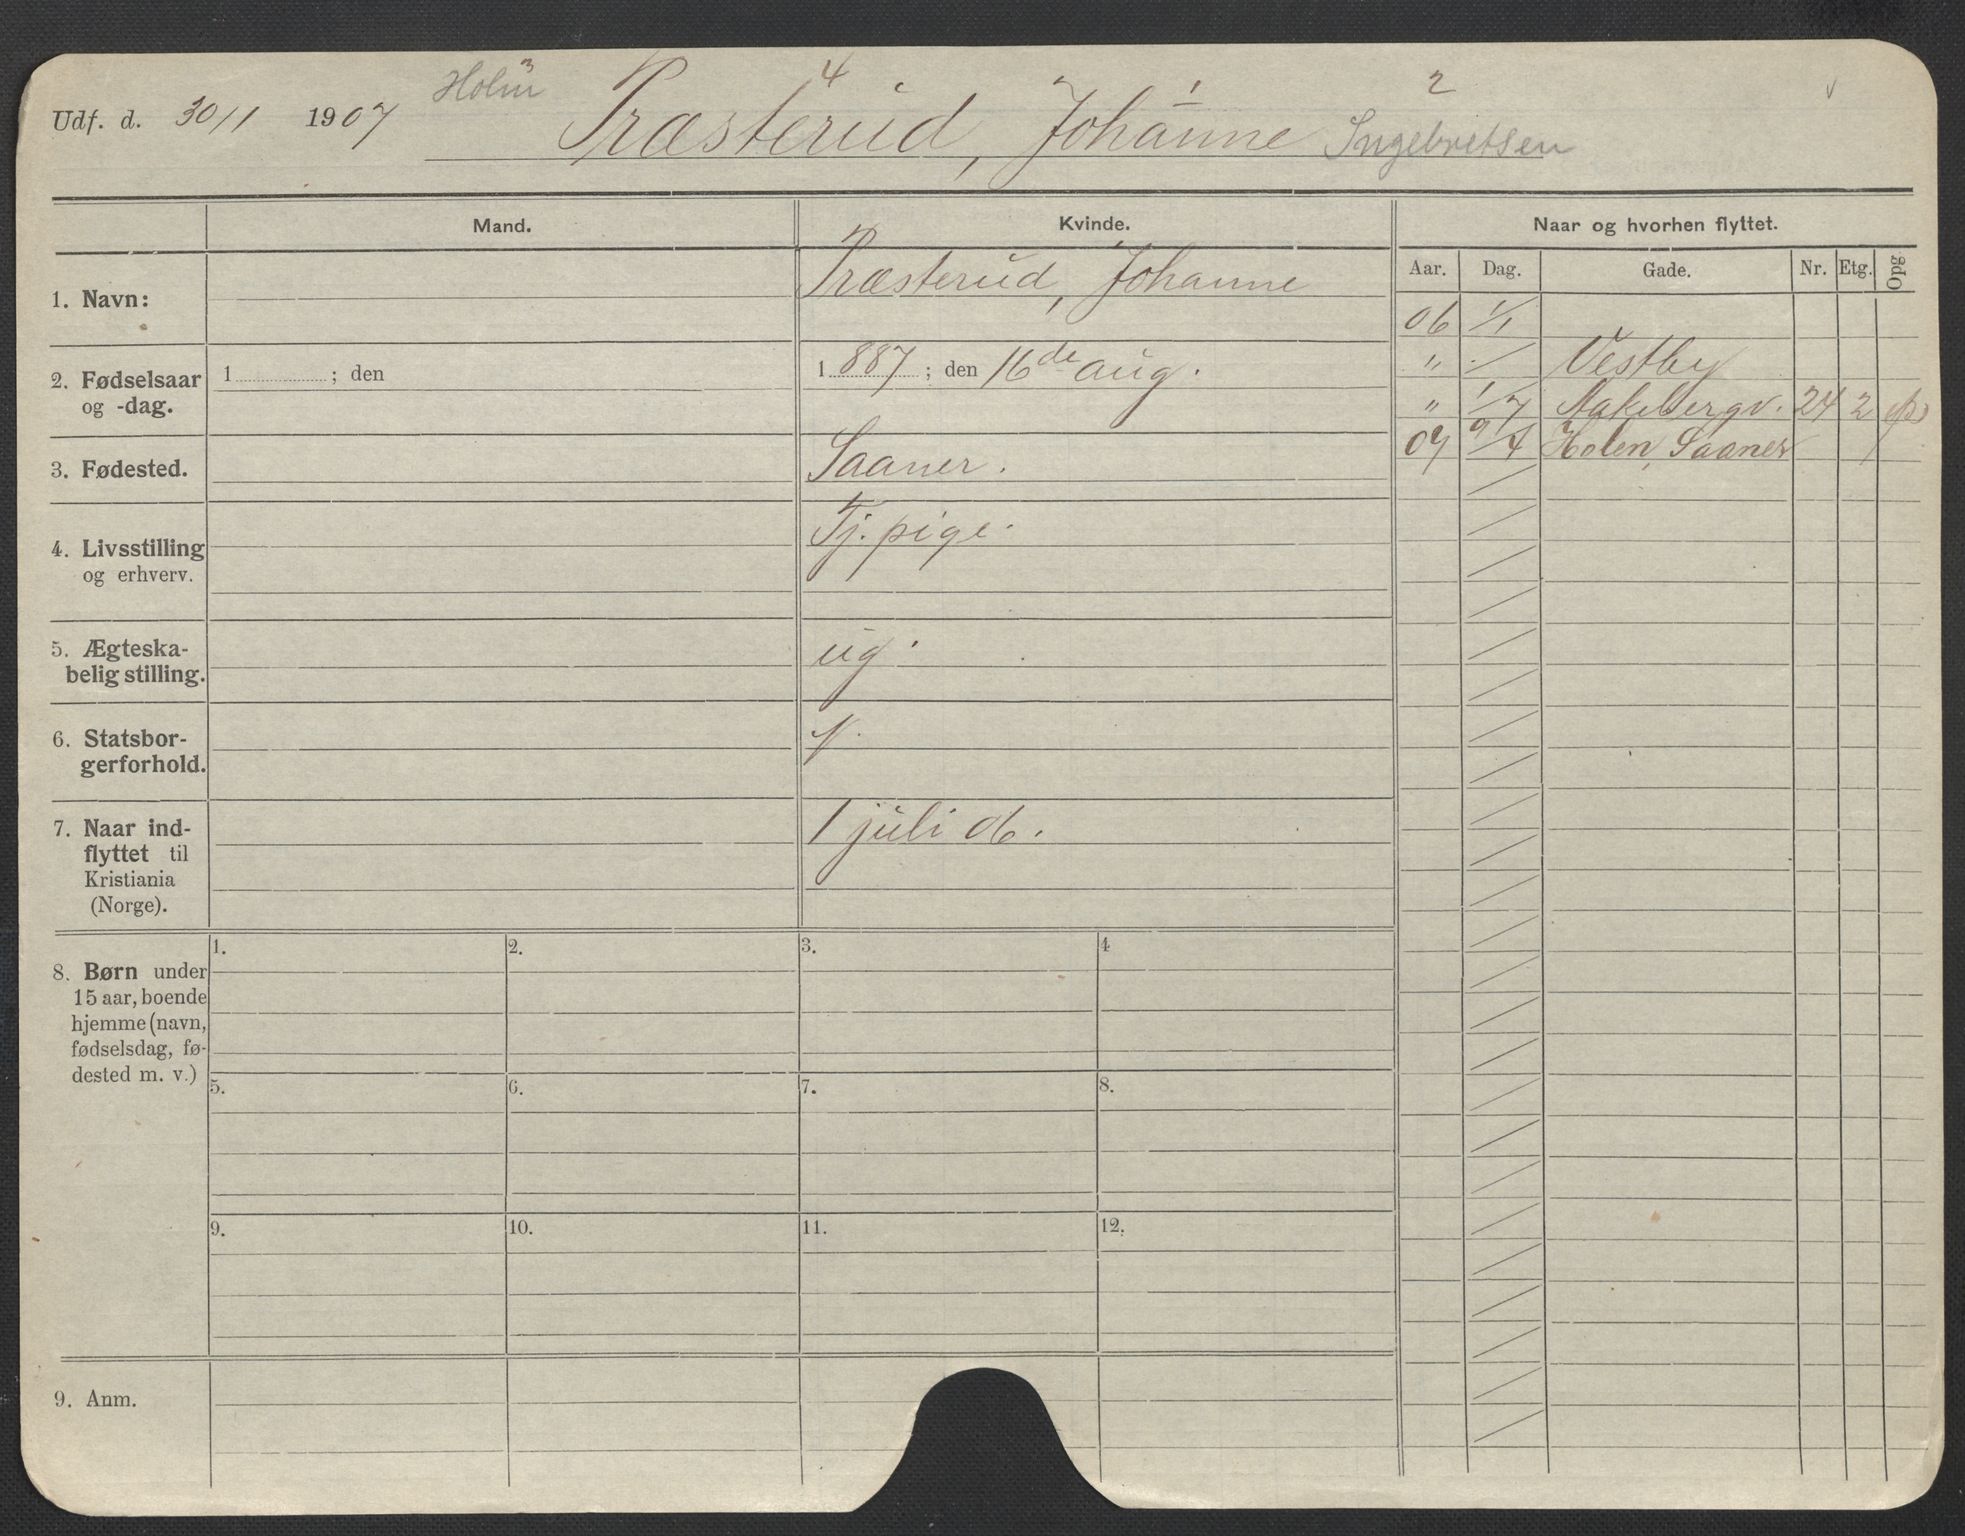 Holm 3 4 1 2
Udf. d. 30/1 1907 Præsterud, Johanne Ingebretsen
Mand. Kvinde. Naar og hvorhen flyttet.
Aar. Dag. Gade. Nr. Etg. Opg
1. Navn: Præsterud, Johanne
2. Fødselsaar og -dag. 1 ; den 1 887 ; den 16de aug.
3. Fødested. Saaner.
4. Livsstilling og erhverv. Tj. pige.
5. Ægteska-
belig stilling. ug.
6. Statsbor-
gerforhold. N.
7. Naar ind-
flyttet til
Kristiania
(Norge). 1 juli 06.
06 1/1
" / Vestby
" 1/7 Aakebergv. 24 2
07 9/4 Holen, Saaner
8. Børn under
15 aar, boende
hjemme (navn,
fødselsdag, fø-
dested m. v.)
1. 2. 3. 4
5. 6. 7. 8.
9. 10. 11. 12.
9. Anm.